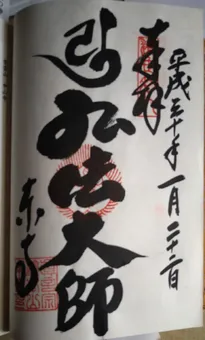 奉拝
平成三十年一月二十二日
弘法大師
東寺